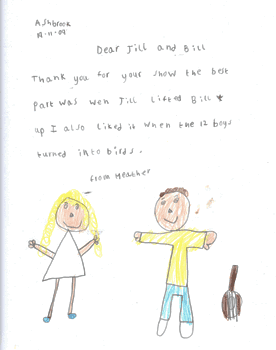 Ashbrook
19-11-09
Dear Jill and Bill
Thank you for your show the best
part was wen Jill lifted Bill
up I also liked it when the 12 boys
turned into birds.
from Heather